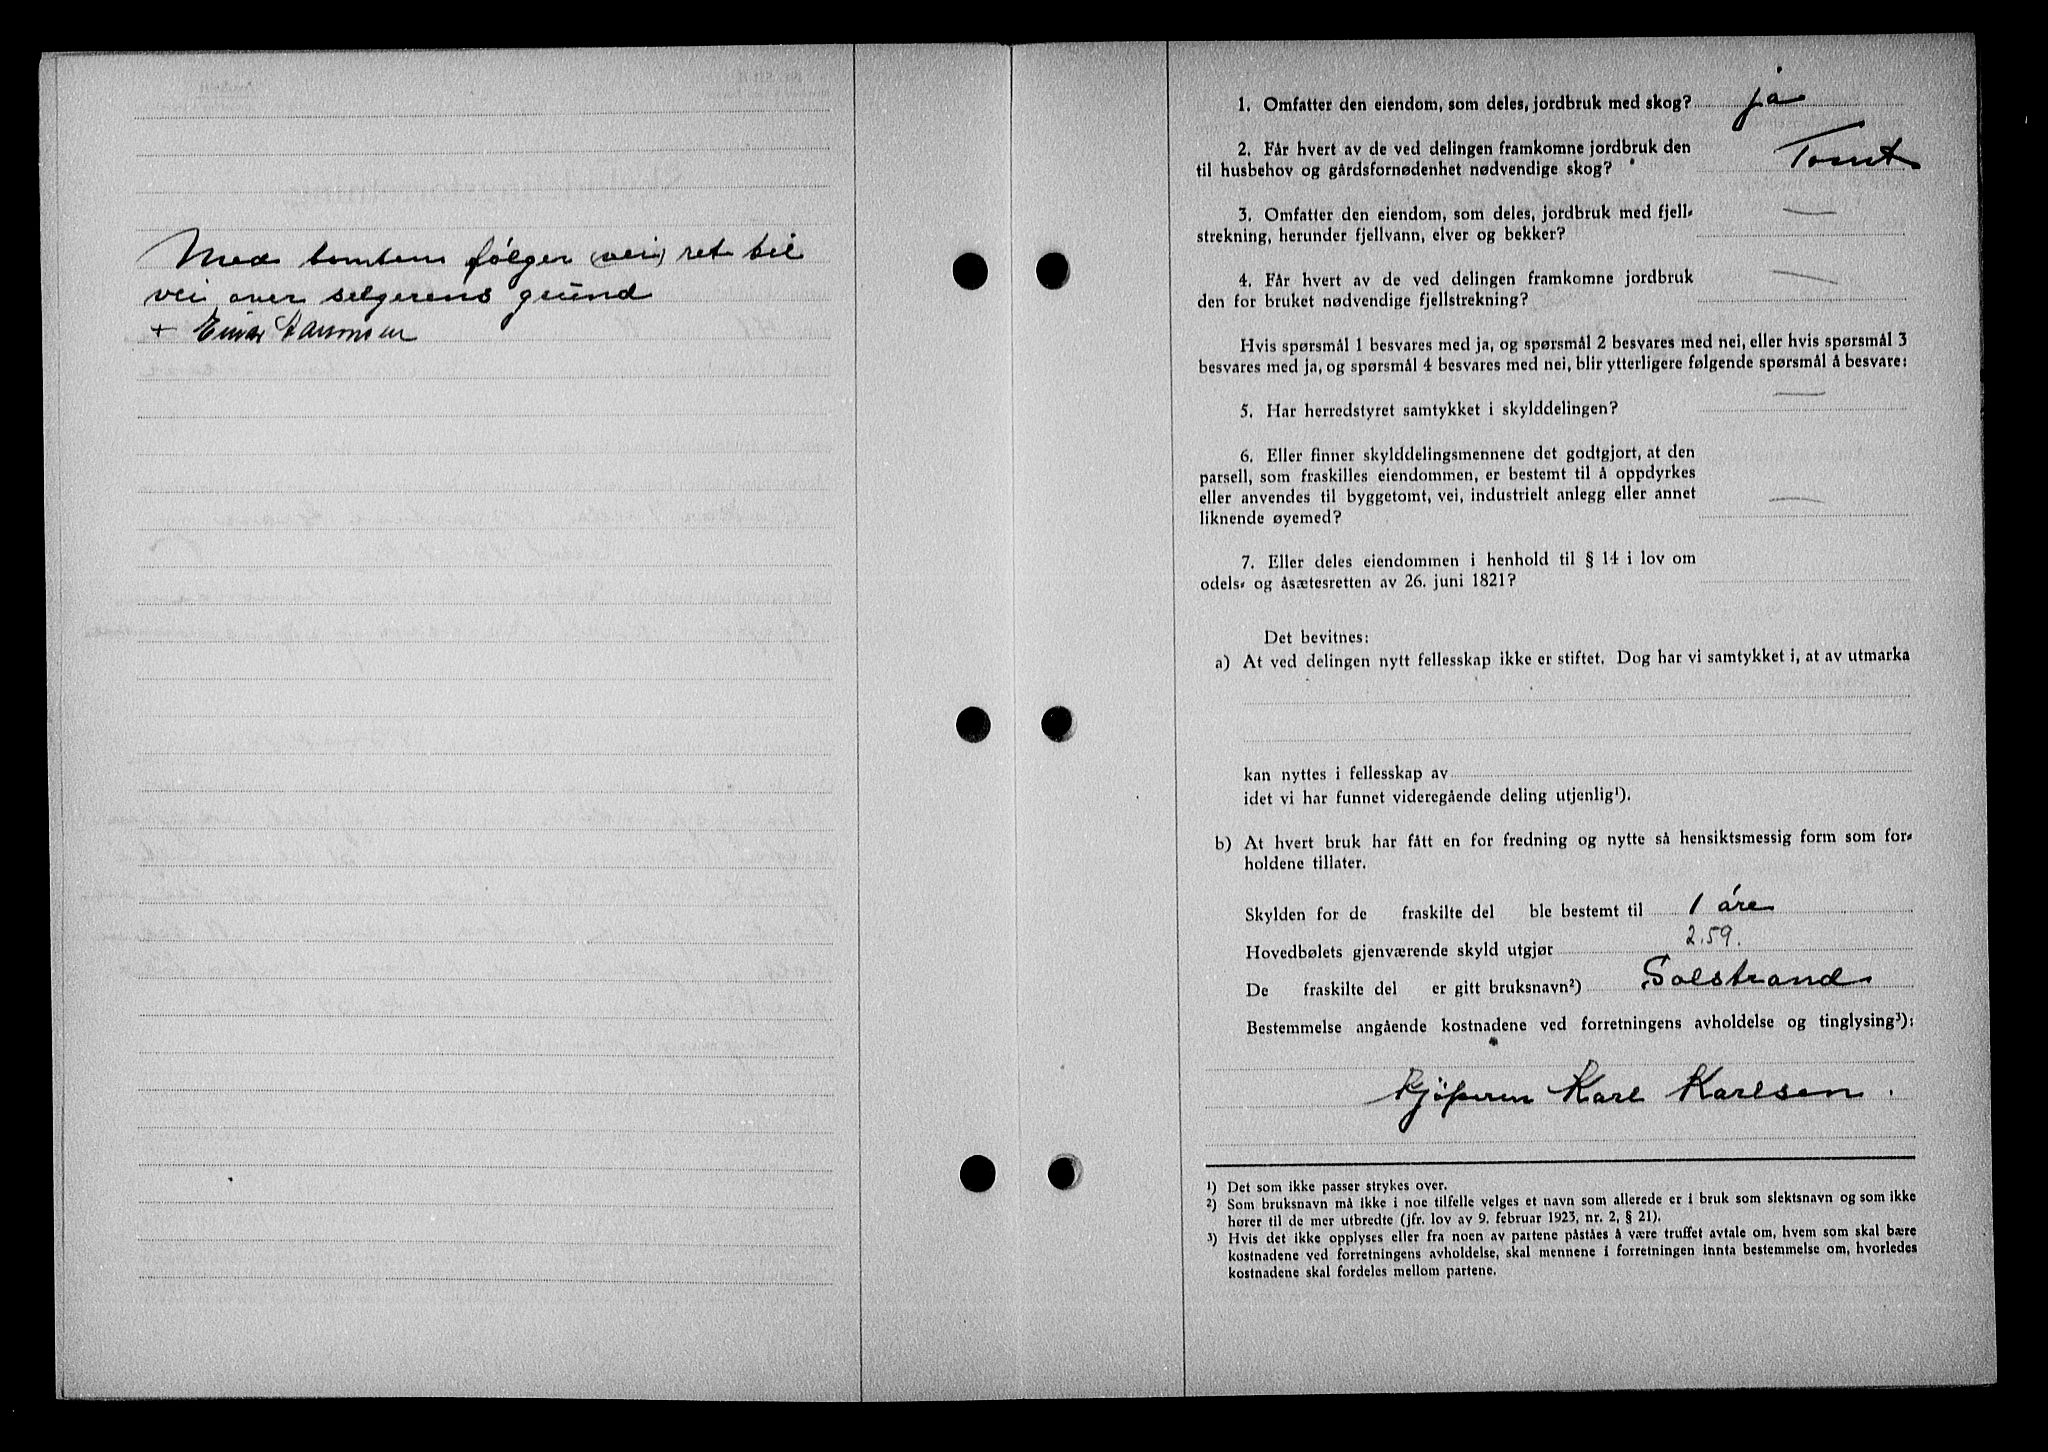 Med tomten følger (vei) ret til
vei over selgerens grund
+ Einar
1. Omfatter den eiendom, som deles, jordbruk med skog? ja
2. Får hvert av de ved delingen framkomne jordbruk den
til husbehov og gårdsfornødenhet nødvendige skog? Tomt
3. Omfatter den eiendom, som deles, jordbruk med fjell-
strekning, herunder fjellvann, elver og bekker? —
4. Får hvert av de ved delingen framkomne jordbruk
den for bruket nødvendige fjellstrekning? —
Hvis spørsmål 1 besvares med ja, og spørsmål 2 besvares med nei, eller hvis spørsmål 3
besvares med ja, og spørsmål 4 besvares med nei, blir ytterligere følgende spørsmål å besvare:
5. Har herredstyret samtykket i skylddelingen? —
6. Eller finner skylddelingsmennene det godtgjort, at den
parsell, som fraskilles eiendommen, er bestemt til å oppdyrkes
eller anvendes til byggetomt, vei, industrielt anlegg eller annet
liknende øyemed? —
7. Eller deles eiendommen i henhold til § 14 i lov om
odels- og åsætesretten av 26. juni 1821?
Det bevitnes:
a) At ved delingen nytt fellesskap ikke er stiftet. Dog har vi samtykket i, at av utmarka
kan nyttes i fellesskap av
idet vi har funnet videregående deling utjenlig¹).
b) At hvert bruk har fått en for fredning og nytte så hensiktsmessig form som for-
holdene tillater.
Skylden for de fraskilte del ble bestemt til 1 øre
Hovedbølets gjenværende skyld utgjør 2.59.
De fraskilte del er gitt bruksnavn²) Solstrand
Bestemmelse angående kostnadene ved forretningens avholdelse og tinglysing³):
Kjøperen Karl Karlsen.
¹) Det som ikke passer strykes over.
²) Som bruksnavn må ikke i noe tilfelle velges et navn som allerede er i bruk som slektsnavn og som ikke
hører til de mer utbredte (jfr. lov av 9. februar 1923, nr. 2, § 21).
³) Hvis det ikke opplyses eller fra noen av partene påståes å være truffet avtale om, hvem som skal bære
kostnadene ved forretningens avholdelse, skal mennene i forretningen innta bestemmelse om, hvorledes
kostnadene skal fordeles mellom partene.